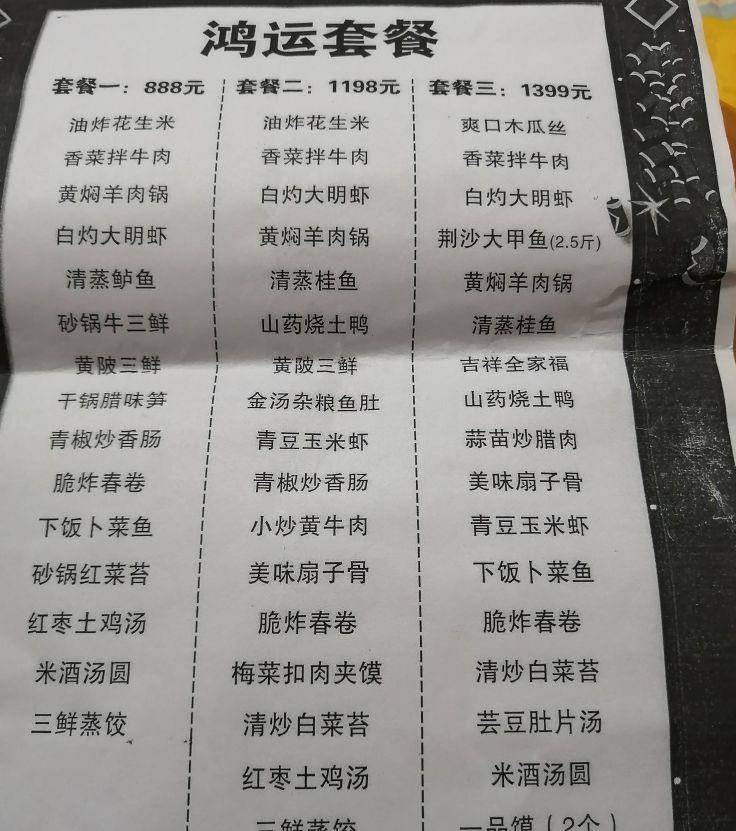 鸿运套餐
套餐一：888元
油炸花生米
香菜拌牛肉
黄焖羊肉锅
白灼大明虾
清蒸鲈鱼
砂锅牛三鲜
黄陂三鲜
干锅腊味笋
青椒炒香肠
脆炸春卷
下饭卜菜鱼
砂锅红菜苔
红枣土鸡汤
米酒汤圆
三鲜蒸饺
套餐二：1198元
油炸花生米
香菜拌牛肉
白灼大明虾
黄焖羊肉锅
清蒸桂鱼
山药烧土鸭
黄陂三鲜
金汤杂粮鱼肚
青豆玉米虾
青椒炒香肠
小炒黄牛肉
美味扇子骨
脆炸春卷
梅菜扣肉夹馍
清炒白菜苔
红枣土鸡汤
三鲜蒸饺
套餐三：1399元
爽口木瓜丝
香菜拌牛肉
白灼大明虾
荆沙大甲鱼(2.5斤)
黄焖羊肉锅
清蒸桂鱼
吉祥全家福
山药烧土鸭
蒜苗炒腊肉
美味扇子骨
青豆玉米虾
下饭卜菜鱼
脆炸春卷
清炒白菜苔
芸豆肚片汤
米酒汤圆
一品馍（2个）